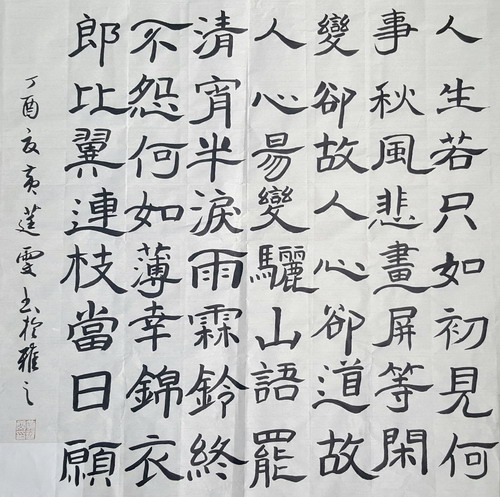 人生若只如初見何
事秋風悲畫屏等閑
變卻故人心卻道故
人心易變驪山語罷
清宵半淚雨霖鈴終
不怨何如薄幸錦衣
郎比翼連枝當日願
丁酉夏黄莲雯书於雅之